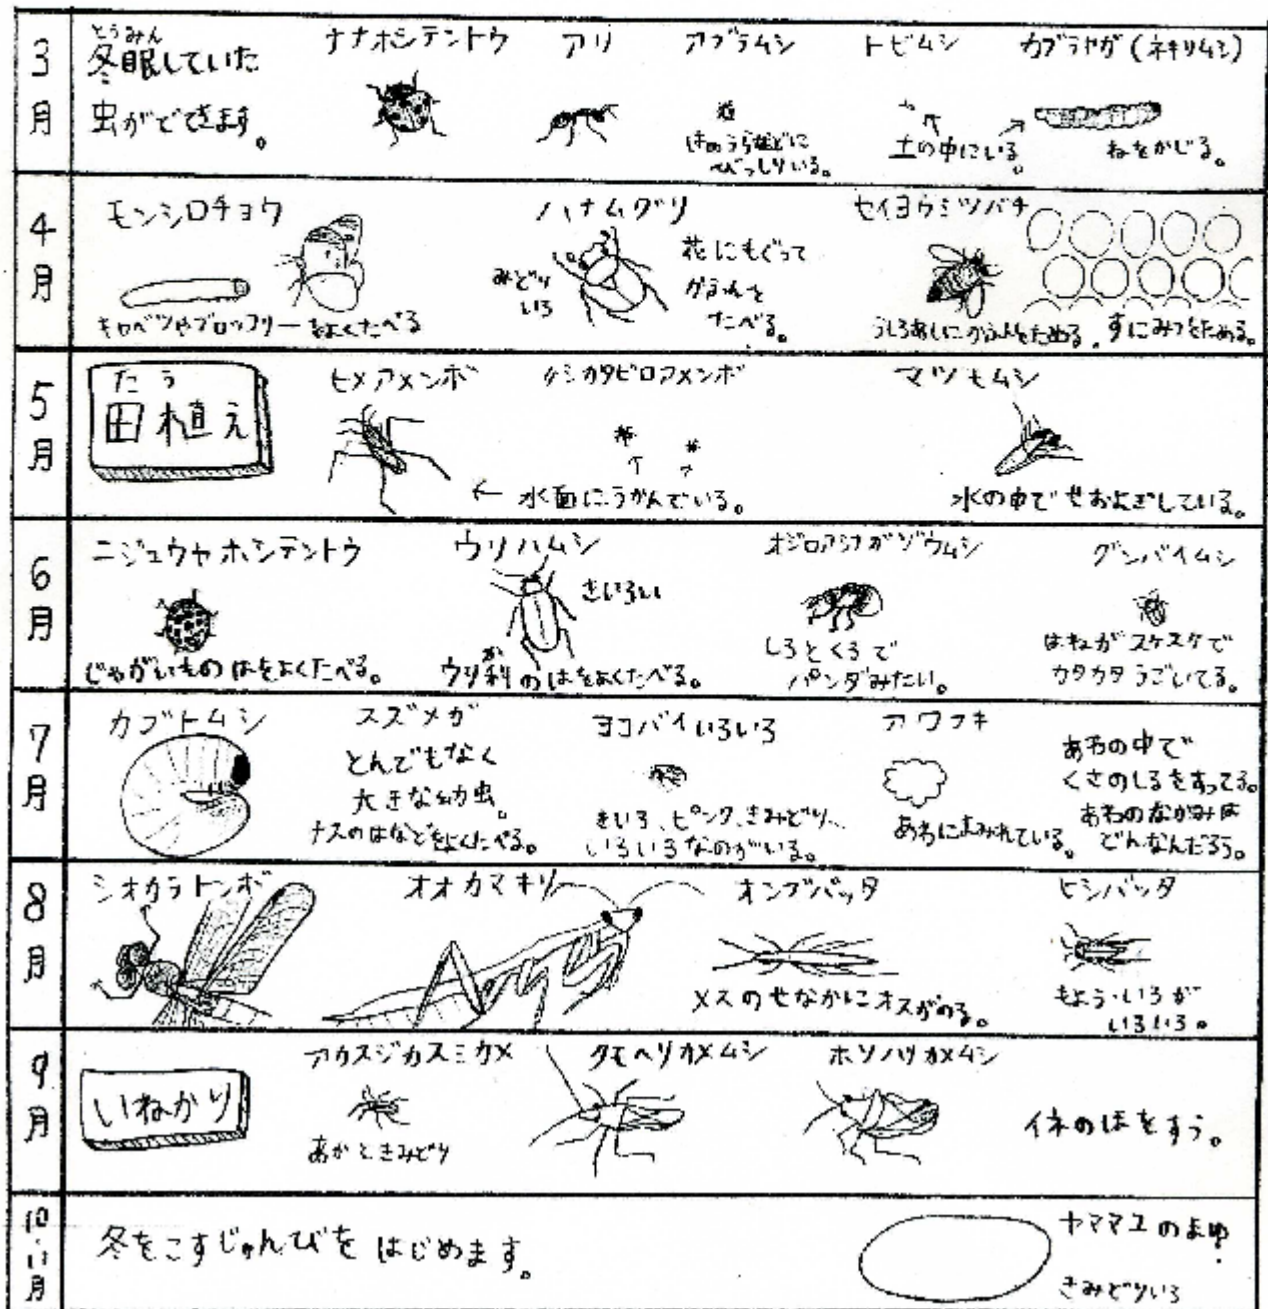 3月
とうみん
冬眠していた
虫がでてきます。
ナナホシテントウ
アリ
アブラムシ
はのうらなどに
びっしりいる。
トビムシ
土の中にいる。
カブラヤガ(ネキリムシ)
ねをかじる。
4月
モンシロチョウ
キャベツやブロッコリーをよくたべる
ハナムグリ
みどり
いろ
花にもぐって
かふんを
たべる。
セイヨウミツバチ
うしろあしにかふんをためる。すにみつをためる。
5月
たう
田植え
ヒメアメンボ
ケシカタビロアメンボ
← 水面にうかんでいる。
マツモムシ
水の中でせおよぎしている。
6月
ニジュウヤホシテントウ
じゃがいものはをよくたべる。
ウリハムシ
きいろい
か
ウリ科のはをよくたべる。
オジロアシナガゾウムシ
しろとくろで
パンダみたい。
グンバイムシ
はねがスケスケで
カタカタうごいてる。
7月
カブトムシ
スズメガ
とんでもなく
大きな幼虫。
ナスのはなどをよくたべる。
ヨコバイいろいろ
きいろ、ピンク、きみどり、
いろいろなのがいる。
アワフキ
あわにまみれている。
あわの中で
くさのしるをすってる。
あわのなかみは
どんなんだろう。
8月
シオカラトンボ
オオカマキリ
オンブバッタ
メスのせなかにオスがのる。
ヒシバッタ
もよう・いろが
いろいろ。
9月
いねかり
アカスジカスミカメ
あかときみどり
クモヘリカメムシ
ホソハリカメムシ
イネのほをすう。
10・11月
冬をこすじゅんびをはじめます。
ヤママユのまゆ
きみどりいろ